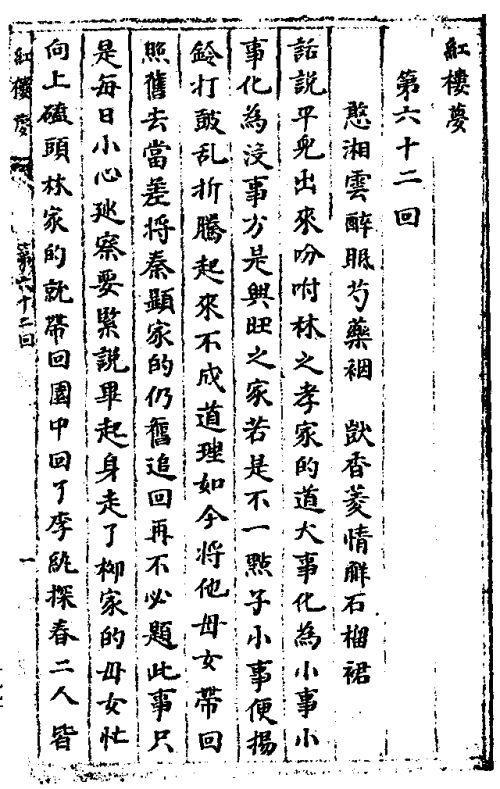 紅樓夢
第六十二回
憨湘雲醉眠芍藥裀　獃香菱情解石榴裙
話說平兒出來吩咐林之孝家的道大事化為小事小
事化為没事方是興旺之家若是不一點子小事便揚
鈴打鼓乱折騰起來不成道理如今將他母女帶回
照舊去當差將秦顯家的仍舊追回再不必題此事只
是每日小心廵察要緊說畢起身走了柳家的母女忙
向上磕頭林家的就帶回園中回了李紈探春二人皆
紅樓夢
第六十二回
一